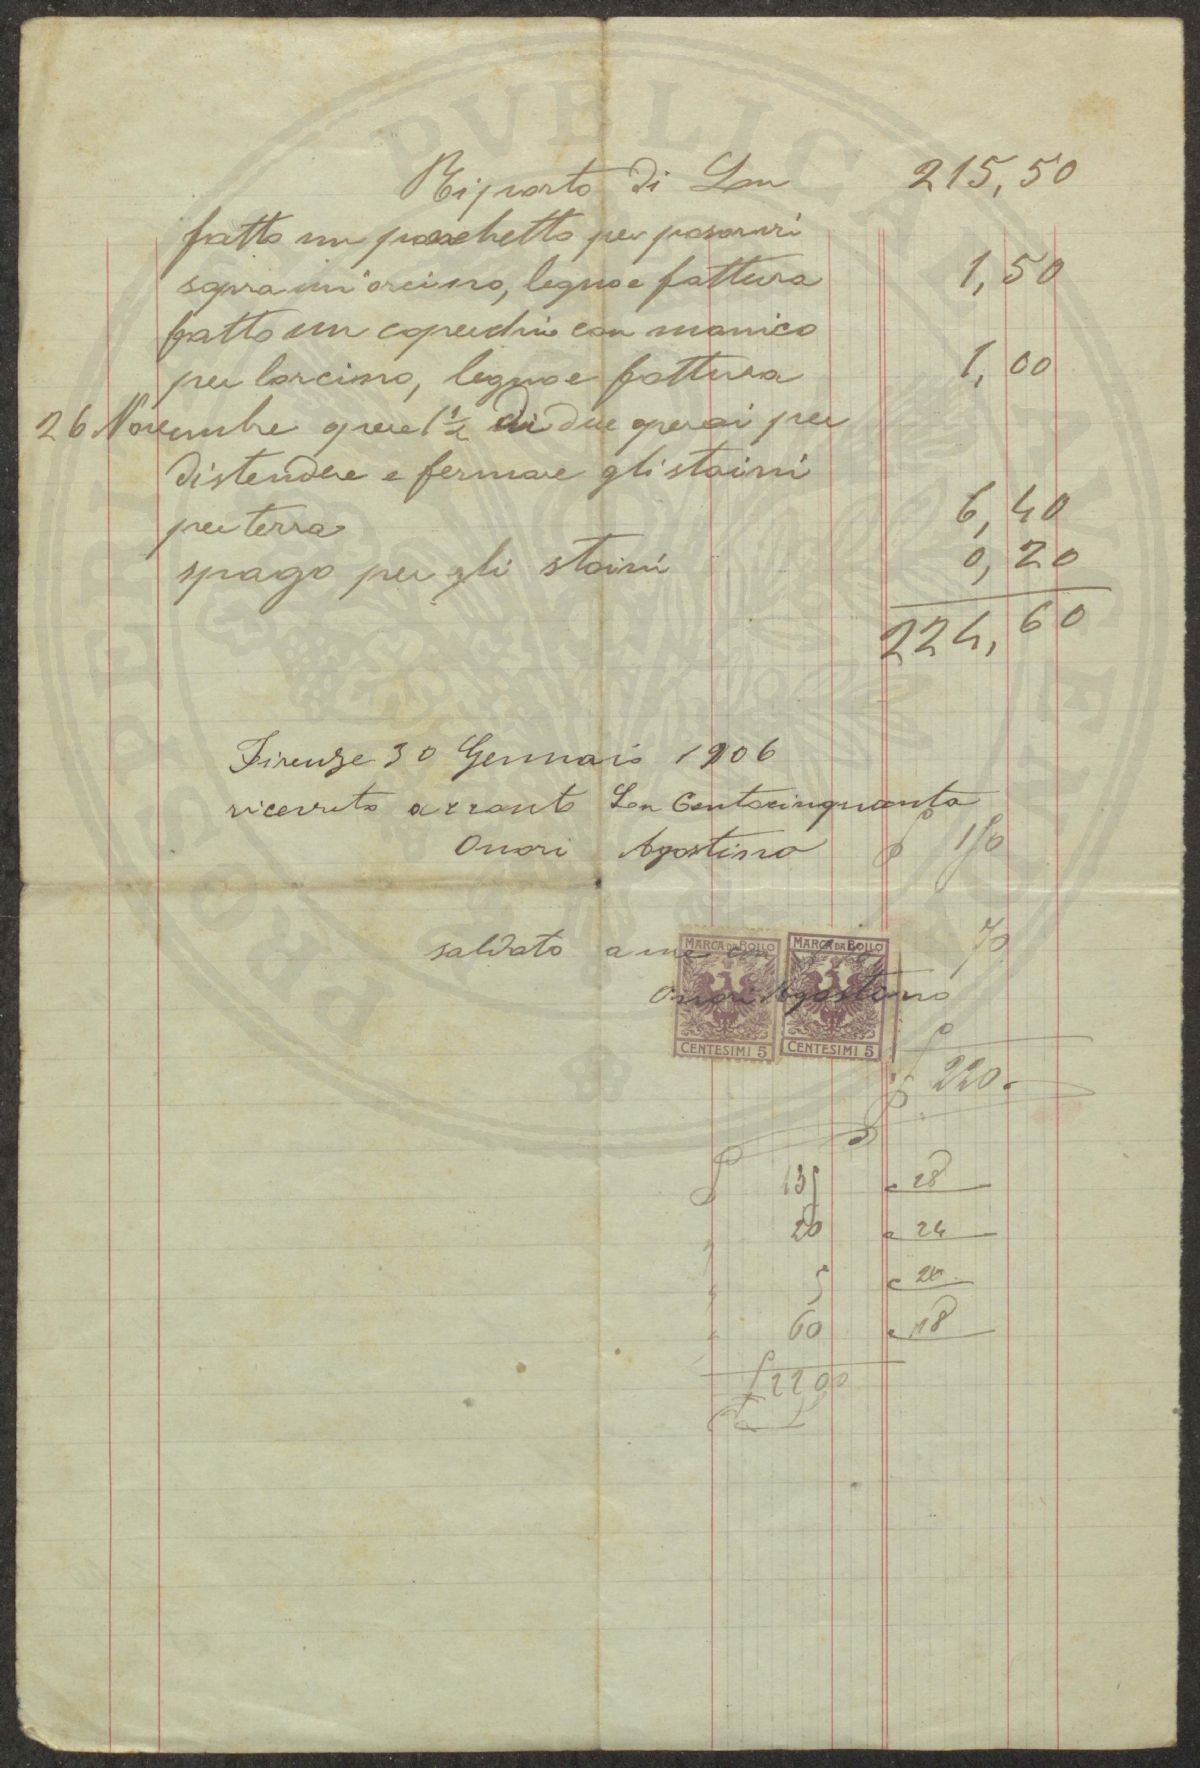 Riporto di Lire 215,50
fatto un pancchetto per posarvi
sopra un'orcino, legno e fattura 1,50
fatto un coperchio con manico
per l'orcino, legno e fattura 1,00
26 Novembre opere 1 1/2 di due operai per
distendere e fermare gli stoini
per terra 6,40
spago per gli stoini 0,20
224,60
Firenze 30 Gennaio 1906
ricevuto acconto Lire Centocinquanta
Onori Agostino £ 150
saldato a me 70
Onori Agostino
MARCA DA BOLLO MARCA DA BOLLO
CENTESIMI 5 CENTESIMI 5
£ 220.
£ 135 28
" 20 24
" 5 20
" 60 18
£ 220